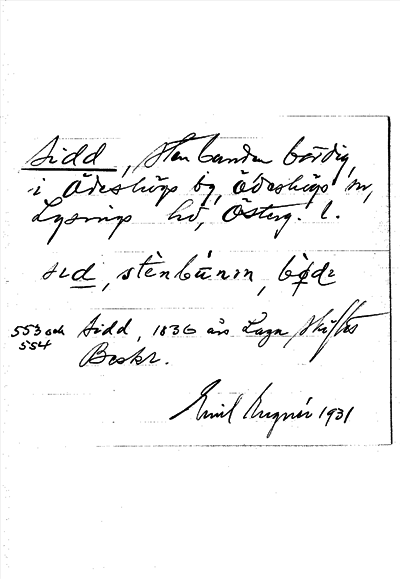 Sidd, Stenbunden bördig,
i Ödeshögs by, Ödeshögs sn,
Lysings hd, Österg. l.
sɩd, stènbúnɩn, bø̀dɩ
553 och Sidd, 1836 års Laga Skiftes
554 Beskr.
Emil 1931